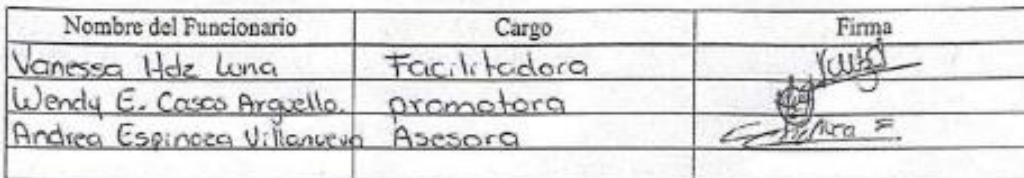 Nombre del Funcionario Cargo Firma
Vanessa Hdz Luna Facilitadora
Wendy E. Casos Arguello. promotora
Andrea Espinoza Villanueva Asesora